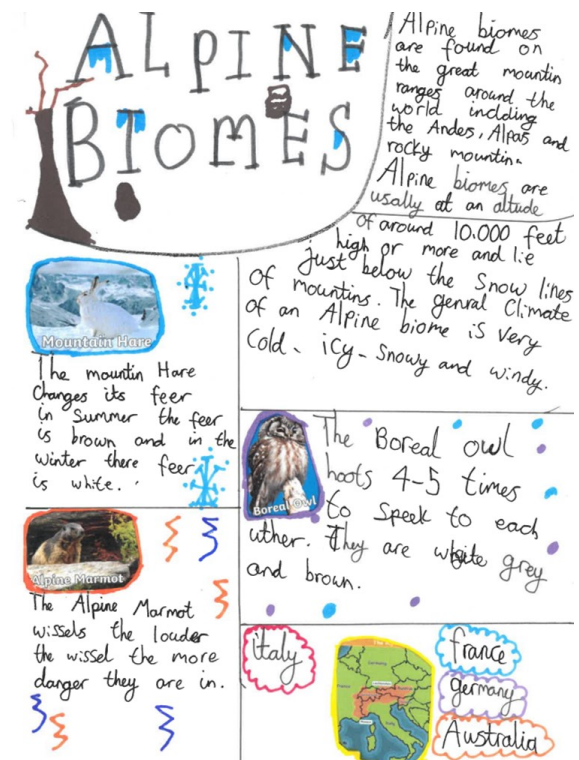 ALPINE
BIOMES
Alpine biomes
are found on
the great mountin
ranges around the
world inclding
the Andes, Alpas and
rocky mountin.
Alpine biomes are
usally at an altude
of around 10.000 feet
high or more and lie
just below the Snow lines
of mountins. The genral Climate
of an Alpine biome is very
Cold - icy - Snowy and windy.
Mountain Hare
The mountin Hare
Changes its feer
in Summer the feer
is brown and in the
winter there feer
is white.
Boreal Owl
The Boreal owl
hoots 4-5 times
to Speek to each
uther. They are white grey
and brown.
Alpine Marmot
The Alpine Marmot
wissels the louder
the wissel the more
danger they are in.
italy
france
germany
Australia